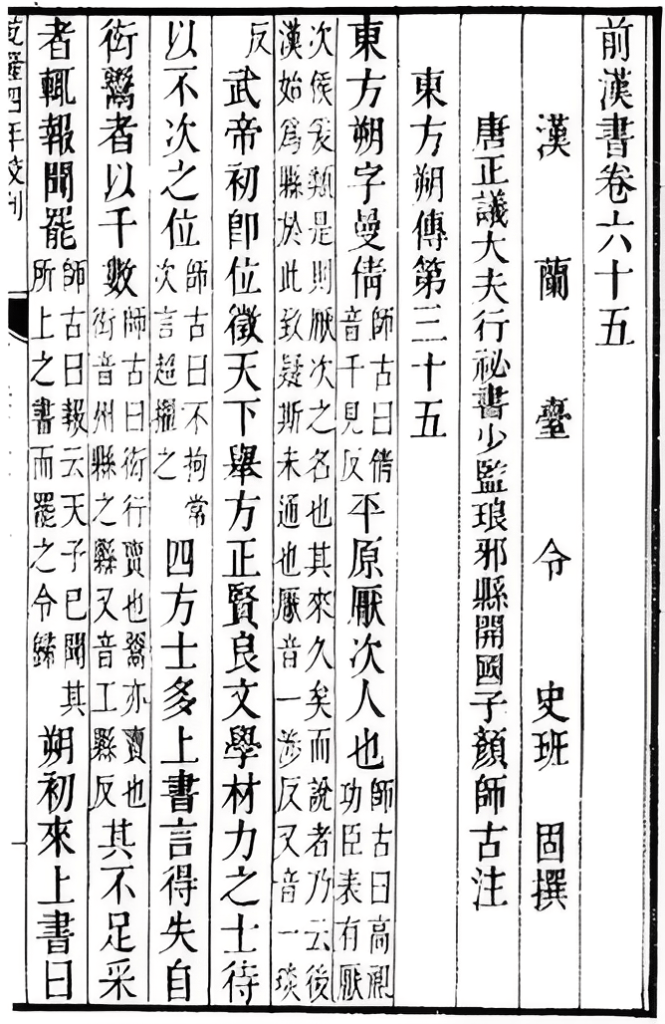 前漢書卷六十五
漢蘭臺令史班固撰
唐正議大夫行祕書少監琅邪縣開國子顏師古注
東方朔傳第三十五
東方朔字曼倩師古曰倩音千見反平原厭次人也師古曰高祖功臣表有厭
次侯爰類是則厭次之名也其來久矣而說者乃云後漢始爲縣於此致疑斯未通也厭音一涉反又音一琰
反武帝初卽位徵天下舉方正賢良文學材力之士待
以不次之位師古曰不拘常次言超擢之四方士多上書言得失自
衒鬻者以千數師古曰衒行賣也鬻亦賣也衒音州縣之縣又音工縣反其不足采
者輒報聞罷師古曰報云天子已聞其所上之書而罷之令歸朔初來上書曰
乾隆四年校刊